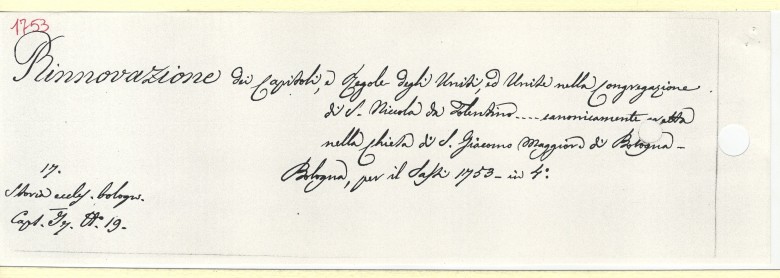 1753
Rinnovazione dei Capitoli, e Regole degli Uniti, ed Unite nella Congregazione
di S. Niccola da Tolentino .... canonicamente eretta
nella Chiesa di S. Giacomo Maggiore di Bologna -
Bologna, per il Sassi 1753 - in 4º
17.
Storia eccles. bologn.
Caps. N. 19.